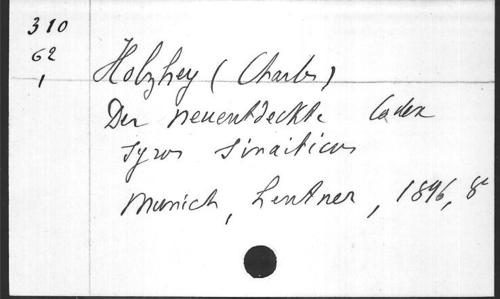 310
62
1
Holzhey (Charles)
Der neuentdeckte Codex
Syrus Sinaiticus
Munich, Lentner, 1896, 8º